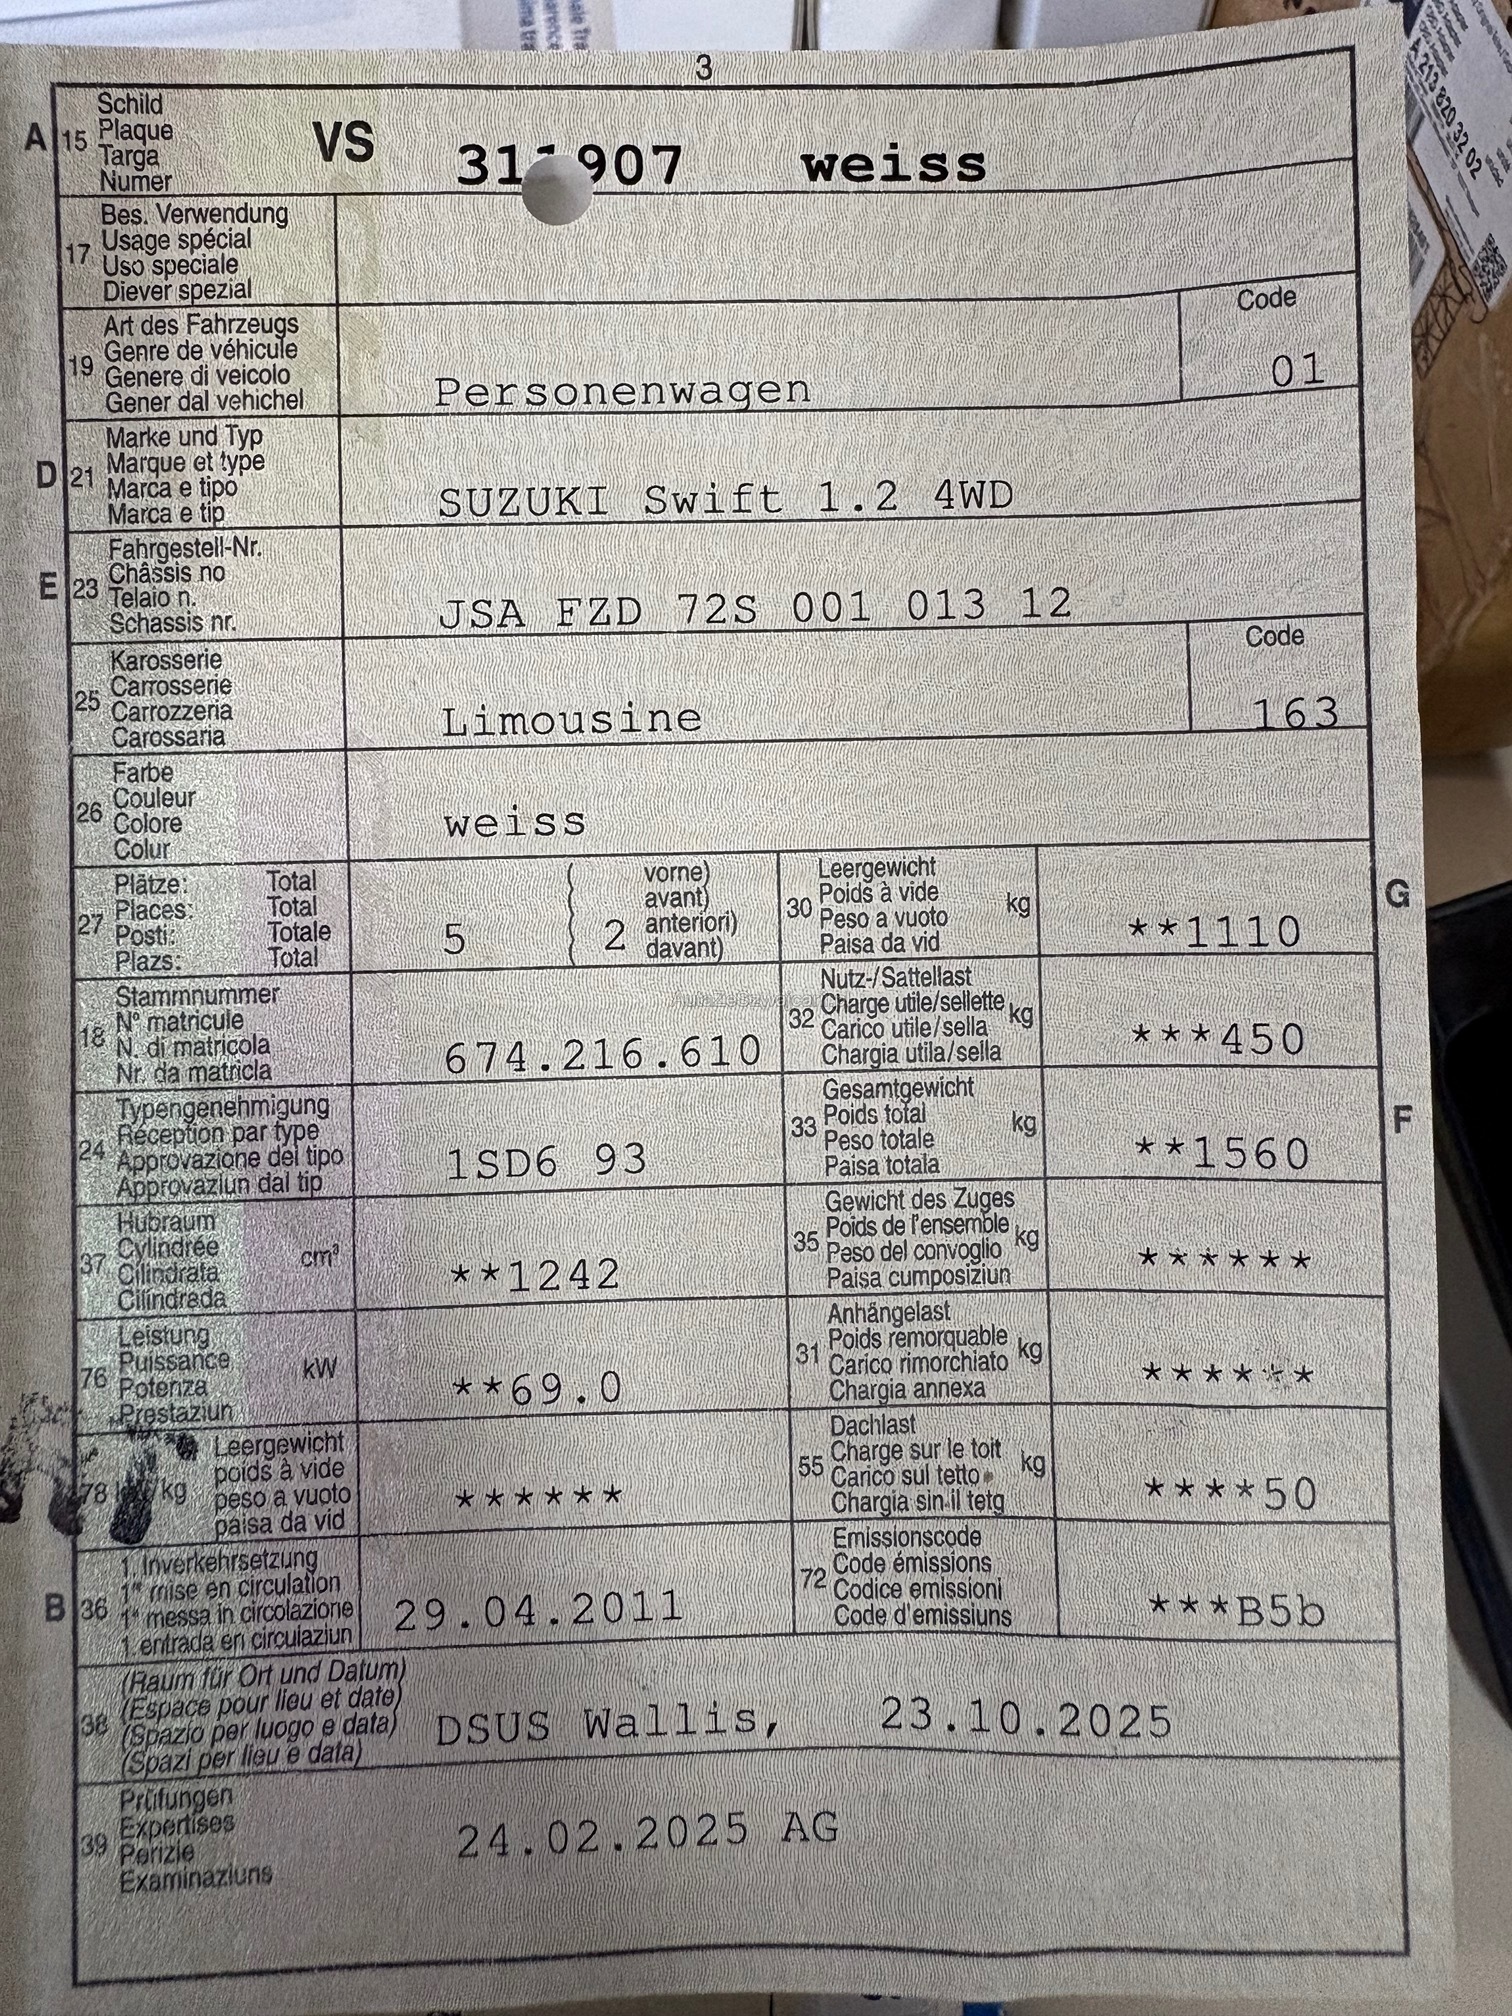 3
A 15 Schild
Plaque
Targa
Numer
VS 311907 weiss
17 Bes. Verwendung
Usage spécial
Uso speciale
Diever spezial
19 Art des Fahrzeugs
Genre de véhicule
Genere di veicolo
Gener dal vehichel
Personenwagen
Code
01
D 21 Marke und Typ
Marque et type
Marca e tipo
Marca e tip
SUZUKI Swift 1.2 4WD
E 23 Fahrgestell-Nr.
Châssis no
Telaio n.
Schassis nr.
JSA FZD 72S 001 013 12
25 Karosserie
Carrosserie
Carrozzeria
Carossaria
Limousine
Code
163
26 Farbe
Couleur
Colore
Colur
weiss
27 Plätze: Total
Places: Total
Posti: Totale
Plazs: Total
5
( 2 vorne)
avant)
anteriori)
davant)
30 Leergewicht
Poids à vide
Peso a vuoto
Paisa da vid
kg
**1110
G
18 Stammnummer
N° matricule
N. di matricola
Nr. da matricla
674.216.610
32 Nutz-/Sattellast
Charge utile/sellette
Carico utile/sella
Chargia utila/sella
kg
***450
24 Typengenehmigung
Réception par type
Approvazione del tipo
Approvaziun dal tip
1SD6 93
33 Gesamtgewicht
Poids total
Peso totale
Paisa totala
kg
**1560
F
37 Hubraum
Cylindrée
Cilindrata
Cilindrada
cm³
**1242
35 Gewicht des Zuges
Poids de l'ensemble
Peso del convoglio
Paisa cumposiziun
kg
******
76 Leistung
Puissance
Potenza
Prestaziun
kW
**69.0
31 Anhängelast
Poids remorquable
Carico rimorchiato
Chargia annexa
kg
******
78 /kg Leergewicht
poids à vide
peso a vuoto
paisa da vid
******
55 Dachlast
Charge sur le toit
Carico sul tetto
Chargia sin il tetg
kg
****50
B 36 1. Inverkehrsetzung
1re mise en circulation
1a messa in circolazione
1. entrada en circulaziun
29.04.2011
72 Emissionscode
Code émissions
Codice emissioni
Code d'emissiuns
***B5b
38 (Raum für Ort und Datum)
(Espace pour lieu et date)
(Spazio per luogo e data)
(Spazi per lieu e data)
DSUS Wallis, 23.10.2025
39 Prüfungen
Expertises
Perizie
Examinaziuns
24.02.2025 AG
A 213 820 32 02